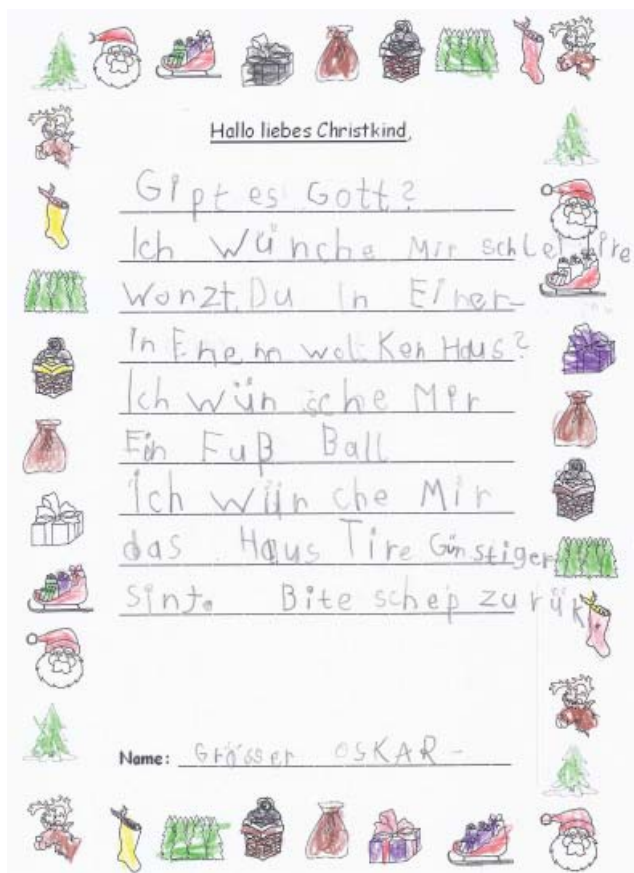 Hallo liebes Christkind,
Gipt es Gott?
Ich Wünche Mir schleitire
wonzt Du in Einer-
in Enem wolken Haus?
Ich wün sche Mir
Ein Fuß Ball
Ich wün che Mir
das Haus Tire Günstiger
sint. Bite schep zurük
Name: Grösser OSKAR-